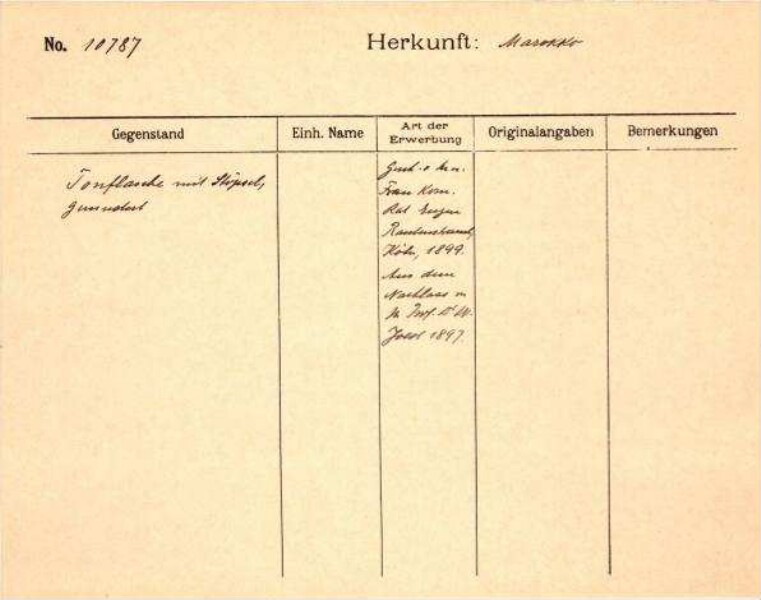 No. 10787
Herkunft: Marokko
Gegenstand
Einh. Name
Art der
Erwerbung
Originalangaben
Bemerkungen
Tonflasche mit Stöpsel,
Frau Kom.
Rat Eugen
Rautenstrauch,
Köln, 1899.
Aus dem
Nachlass v.
Prof. Dr W.
Joest 1897.